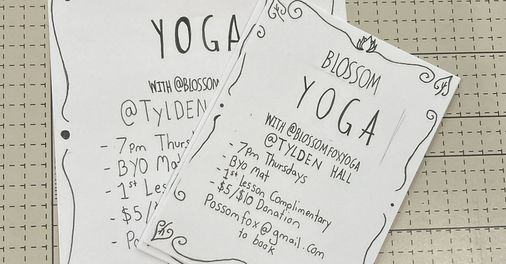 YOGA
WITH @BLOSSOM
@TYLDEN
- 7pm Thurs
- BYO Mat
- 1st Les
- $5/10
- Po
BLOSSOM
YOGA
WITH @BLOSSOMFOXYOGA
@TYLDEN HALL
- 7pm Thursdays
- BYO Mat
- 1st Lesson Complimentary
- $5/$10 Donation
Possomfox@gmail.com
to book